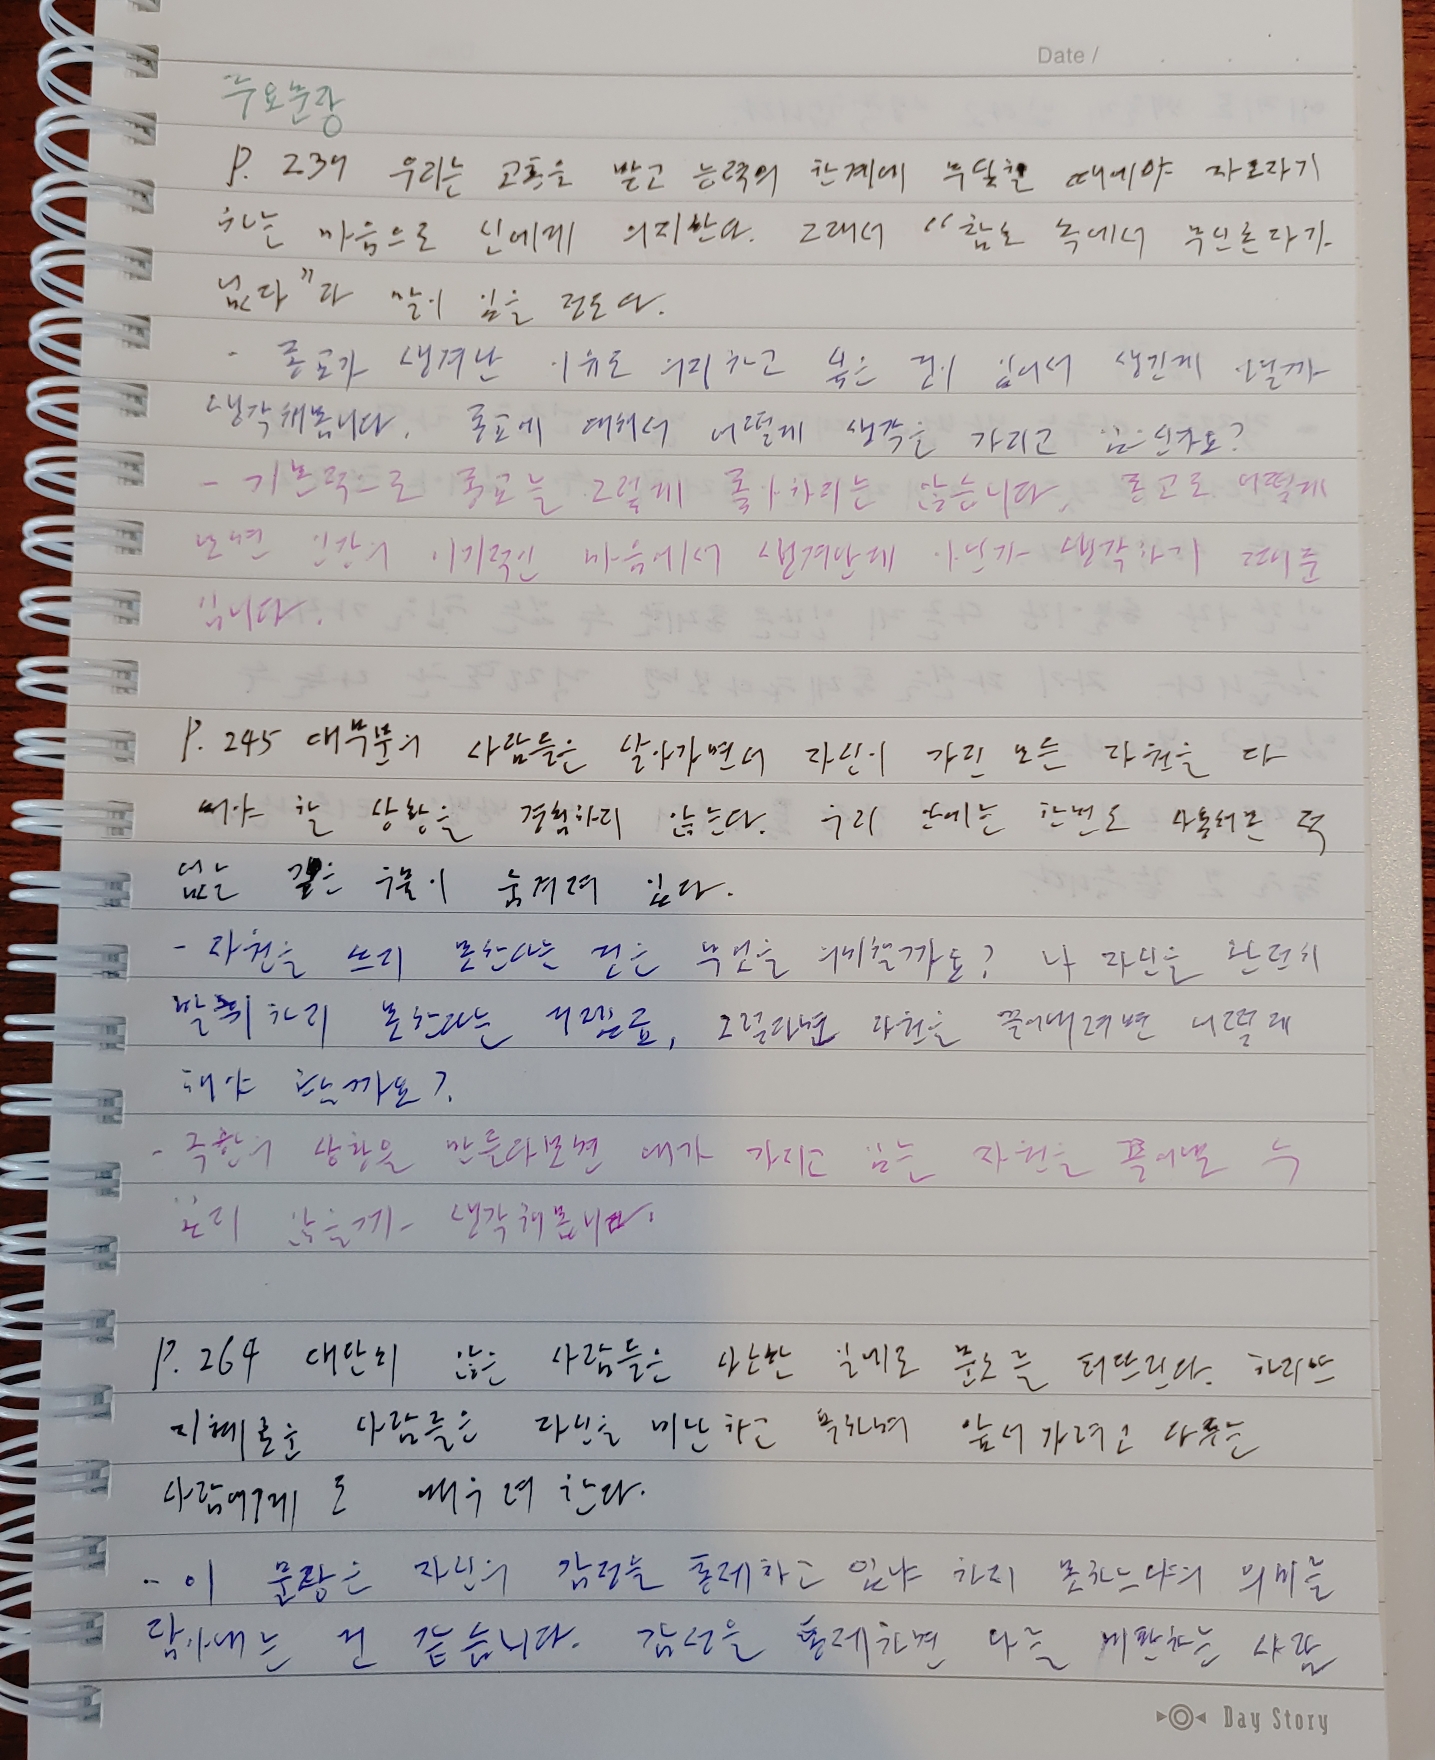 Date /
주요문장
P. 239 우리는 고통을 받고 능력의 한계에 부딪힐 때에야 자포자기
하는 마음으로 신에게 의지한다. 그래서 "참호 속에서 무신론자가
없다"라 말이 있을 정도다.
- 종교가 생겨난 이유도 의지하고 싶은 것이 있어서 생긴게 아닐까
생각해봅니다. 종교에 대해서 어떻게 생각을 가지고 있으신가요?
- 기본적으로 종교를 그렇게 좋아하지는 않습니다. 종교도 어떻게
보면 인간의 이기적인 마음에서 생겨난게 아닌가 생각하기 때문
입니다.
P. 245 대부분의 사람들은 살아가면서 자신이 가진 모든 자원을 다
써야 할 상황을 경험하지 않는다. 우리 안에는 한번도 사용해본 적
없는 깊은 우물이 숨겨져 있다.
- 자원을 쓰지 못한다는 것은 무엇을 의미할까요? 나 자신을 완전히
발휘하지 못한다는 거겠죠, 그렇다면 자원을 끌어내려면 어떻게
해야 할까요?
- 극한의 상황을 만들다보면 내가 가지고 있는 자원을 끌어낼 수
있지 않을까 생각해봅니다.
P. 264 대단치 않은 사람들은 사소한 일에도 분노를 터뜨린다. 하지만
지혜로운 사람들은 자신을 비난하고 욕하며 앞서가려고 다투는
사람에게도 배우려 한다.
- 이 문장은 자신의 감정을 통제하고 있냐 하지 못하느냐의 의미를
담아내는 것 같습니다. 감정을 통제하면 나를 비판하는 사람
Day Story